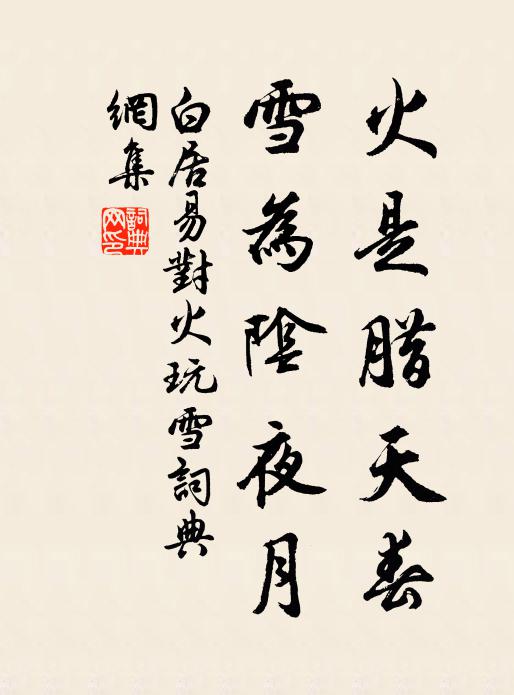 火是腊天春
雪為陰夜月
白居易對火玩雪詞典
網集
詞典
网印